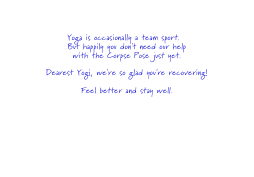 Yoga is occasionally a team sport.
But happily you don't need our help
with the Corpse Pose just yet.
Dearest Yogi, we're so glad you're recovering!
Feel better and stay well.